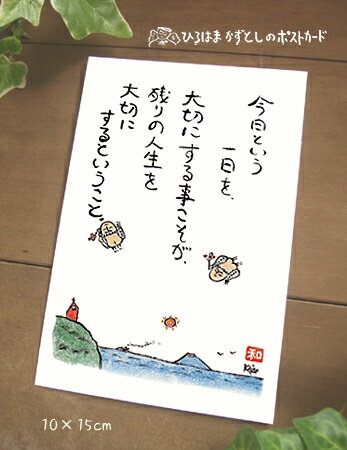 ひろはまかずとしのポストカード
今日という
一日を、
大切にする事こそが、
残りの人生を
大切に
するということ。
和
Kazu
10×15cm